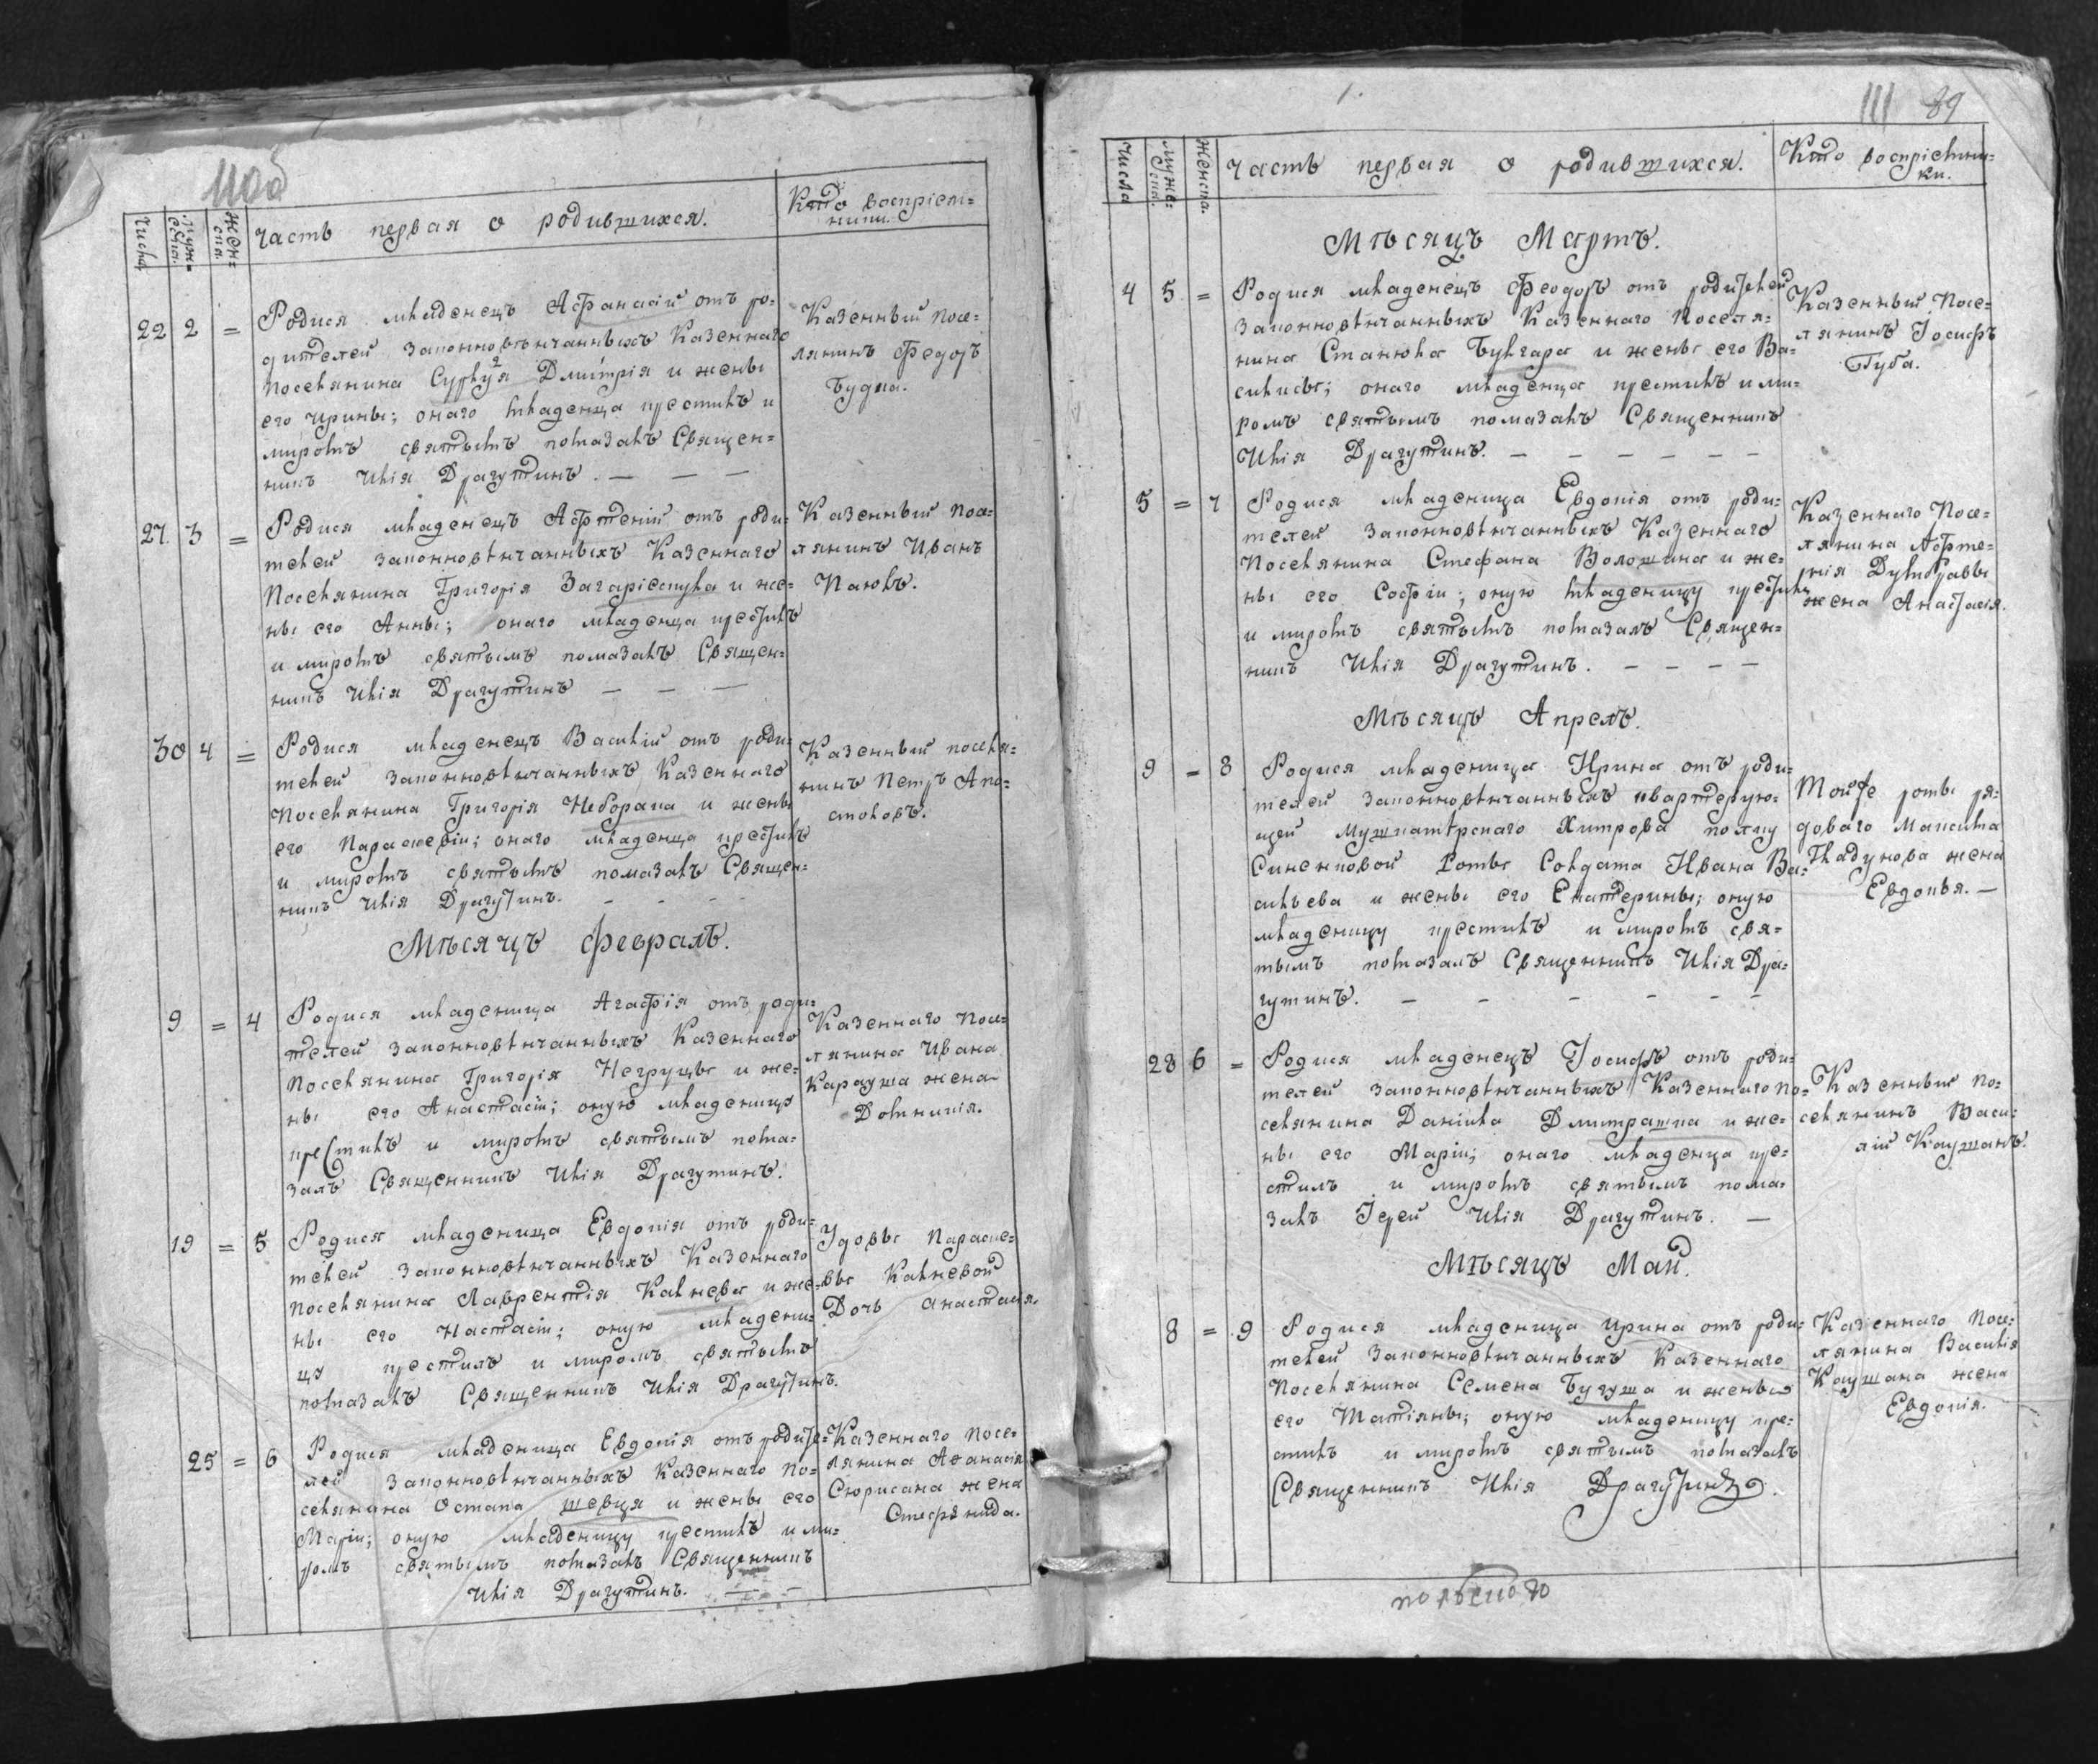 110об
Числа
Муж=
ска.
Жен=
ска.
Часть первая о родившихся.
Кто воспріем=
ники.
22 2 =
Родися младенецъ Афанасій отъ ро=
дителей законновѣнчанныхъ Казеннаго
Поселянина Дмитрія и жены
его Ирины; онаго младенца крестилъ и
миромъ святымъ помазалъ Священ=
никъ Илія Драгутинъ. — — —
Казенный Посе=
лянинъ Федоръ
Будка.
27. 3 =
Родися младенецъ Афтеній отъ роди=
телей законновѣнчанныхъ Казеннаго
Поселянина Григорія и же=
ны его Анны; онаго младенца крестилъ
и миромъ святымъ помазалъ Священ=
никъ Илія Драгутинъ — — —
Казенный Посе=
лянинъ Иванъ
Паювъ.
30 4 =
Родися младенецъ Василій отъ роди=
телей законновѣнчанныхъ Казеннаго
Поселянина Григорія Неборака и жены
его Параскевіи; онаго младенца крестилъ
и миромъ святымъ помазалъ Священ=
никъ Илія Драгутинъ. - - - -
Казенный поселя=
нинъ Петръ Апо=
столовъ.
Мѣсяцъ Февраль.
9 = 4
Родися младеница Агафія отъ роди=
телей законновѣнчанныхъ Казеннаго
Поселянина Григорія Негруцы и же=
ны его Анастасіи; оную младеницу
крестилъ и миромъ святымъ пома=
залъ Священникъ Илія Драгутинъ.
Казеннаго Посе=
лянина Ивана
Карауша жена
Домникія.
19 = 5
Родися младеница Евдокія отъ роди=
телей законновѣнчанныхъ Казеннаго
Поселянина Лаврентія Калнева и же=
ны его Настасіи; оную младени=
цу крестилъ и миромъ святымъ
помазалъ Священникъ Илія Драгутинъ.
Удовы Параске=
вы Калневой
Дочь Анастасія.
25 = 6
Родися младеница Евдокія отъ родите=
лей законновѣнчанныхъ Казеннаго По=
селянина Остапа Шевця и жены его
Маріи; оную младеницу крестилъ и ми=
ромъ святымъ помазалъ Священникъ
Илія Драгутинъ. — —
Казеннаго Посе=
лянина Аѳанасія
Сюрисана жена
Стефанида.
111 89
Числа
Муже=
ска.
Женска.
Часть первая о родившихся.
Кто воспріемни=
ки.
Мѣсяцъ Мартъ.
4 5 =
Родися младенецъ Феодоръ отъ родителей
законновѣнчанныхъ Казеннаго Поселя=
нина Станюла Булгара и жены его Ва=
силисы; онаго младенца крестилъ и ми=
ромъ святымъ помазалъ Священникъ
Илія Драгутинъ. — — — — — —
Казенный Посе=
лянинъ Іосифъ
Губа.
5 = 7
Родися младеница Евдокія отъ роди=
телей законновѣнчанныхъ Казеннаго
Поселянина Стефана Волошина и же=
ны его Софіи; оную младеницу крестилъ
и миромъ святымъ помазалъ Священ=
никъ Илія Драгутинъ. — — — —
Казеннаго Посе=
лянина Афте=
нія Думбравы
жена Анастасія.
Мѣсяцъ Апрель.
9 = 8
Родися младеница Ирина отъ роди=
телей законновѣнчанныхъ квартерую=
щей Мушкатерскаго Хитрова полку
Синенковой Роты Солдата Ивана Ва=
сильева и жены его Екатерины; оную
младеницу крестилъ и миромъ свя=
тымъ помазалъ Священникъ Илія Дра=
гутинъ. — - - - - -
Тойже роты ря=
доваго Максима
Гладунова жена
Евдокія. —
28 6 =
Родися младенецъ Іосифъ отъ роди=
телей законновѣнчанныхъ Казеннаго по=
селянина Даніила Дмитрашка и же=
ны его Маріи; онаго младенца кре=
стилъ и миромъ святымъ пома=
залъ Іерей Илія Драгутинъ. —
Казенный По=
селянинъ Васи=
лій Каушанъ.
Мѣсяцъ Май.
8 = 9
Родися младеница Ирина отъ роди=
телей законновѣнчанныхъ Казеннаго
Поселянина Семена Бугуша и женыя
его Татіяны; оную младеницу кре=
стилъ и миромъ святымъ помазалъ
Священникъ Илія Драгутинъ.
Казеннаго Посе=
лянина Василія
Каушана жена
Евдокія.